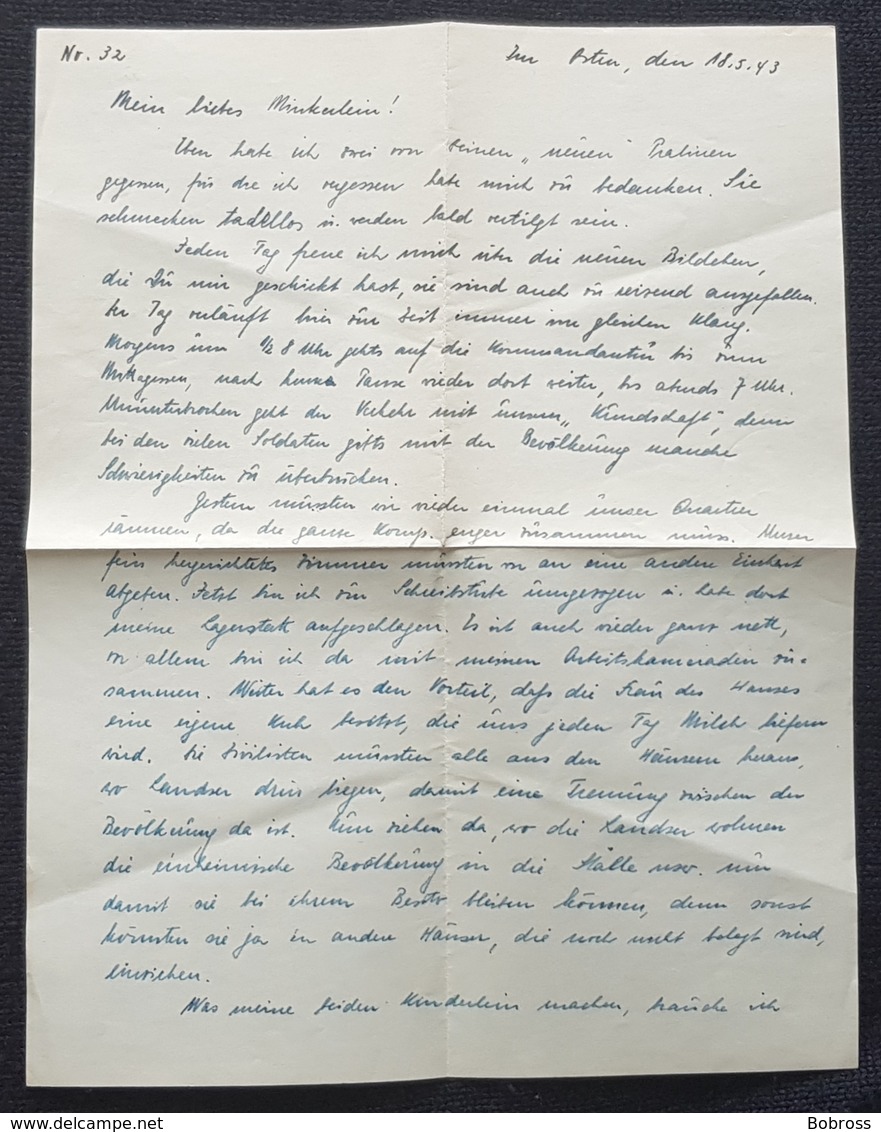 Nr. 32
Im Osten, den 18.5.43
Mein liebes Minkerlein!
Eben habe ich zwei von Deinen „neuen" Pralinen
gegessen, für die ich vergessen habe mich zu bedanken. Sie
schmecken tadellos u. werden bald vertilgt sein.
Jeden Tag freue ich mich über die neuen Bildchen,
die Du mir geschickt hast, sie sind auch zu reizend ausgefallen.
Der Tag verläuft hier zur Zeit immer im gleichen Klang.
Morgens um 1/2 8 Uhr gehts auf die Kommandantur bis zum
Mittagessen, nach kurzer Pause wieder dort weiter, bis abends 7 Uhr.
Ununterbrochen geht der Verkehr mit unserer „Kundschaft", denn
bei den vielen Soldaten gibts mit der Bevölkerung manche
Schwierigkeiten zu überbrücken.
Gestern mussten wir wieder einmal unser Quartier
räumen, da die ganze Komp. enger zusammen muss. Unser
fein hergerichtetes Zimmer mussten wir an eine andere Einheit
abgeben. Jetzt bin ich zur Schreibstube umgezogen u. habe dort
meine Lagerstatt aufgeschlagen. Es ist auch wieder ganz nett,
vor allem bin ich da mit meinen Arbeitskameraden zu-
sammen. Weiter hat es den Vorteil, daß die Frau des Hauses
eine eigene Kuh besitzt, die uns jeden Tag Milch liefern
wird. Die Zivilisten mussten alle aus den Häusern heraus,
wo Landser drin liegen, damit eine Trennung zwischen der
Bevölkerung da ist. Nun ziehen da, wo die Landser wohnen
die einheimische Bevölkerung in die Ställe usw. nur
damit sie bei ihrem Besitz bleiben können, denn sonst
könnten sie ja in andere Häuser, die noch nicht belegt sind,
einziehen.
Was meine beiden Kinderlein machen, brauche ich
Bobross